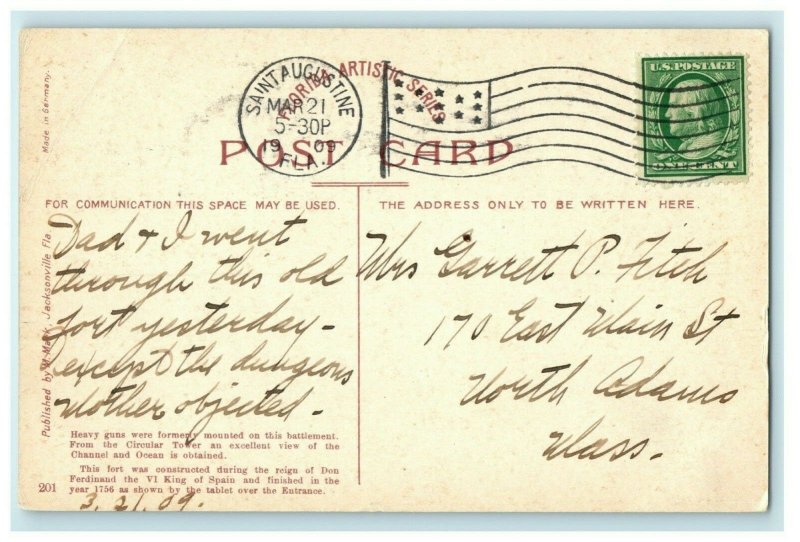 Made in Germany.
FLORIDA ARTISTIC SERIES
SAINT AUGUSTINE
MAR 21
5-30P
1909
FLA.
U.S. POSTAGE
ONE CENT
POST CARD
FOR COMMUNICATION THIS SPACE MAY BE USED.
THE ADDRESS ONLY TO BE WRITTEN HERE.
Dad & I went
through this old
fort yesterday -
except the dungeons
Mother objected -
Mrs Garrett P. Fitch
170 East Main St
North Adams
Mass.
Published by H. Mark, Jacksonville Fla.
Heavy guns were formerly mounted on this battlement.
From the Circular Tower an excellent view of the
Channel and Ocean is obtained.
This fort was constructed during the reign of Don
Ferdinand the VI King of Spain and finished in the
year 1756 as shown by the tablet over the Entrance.
201
3.21.09.